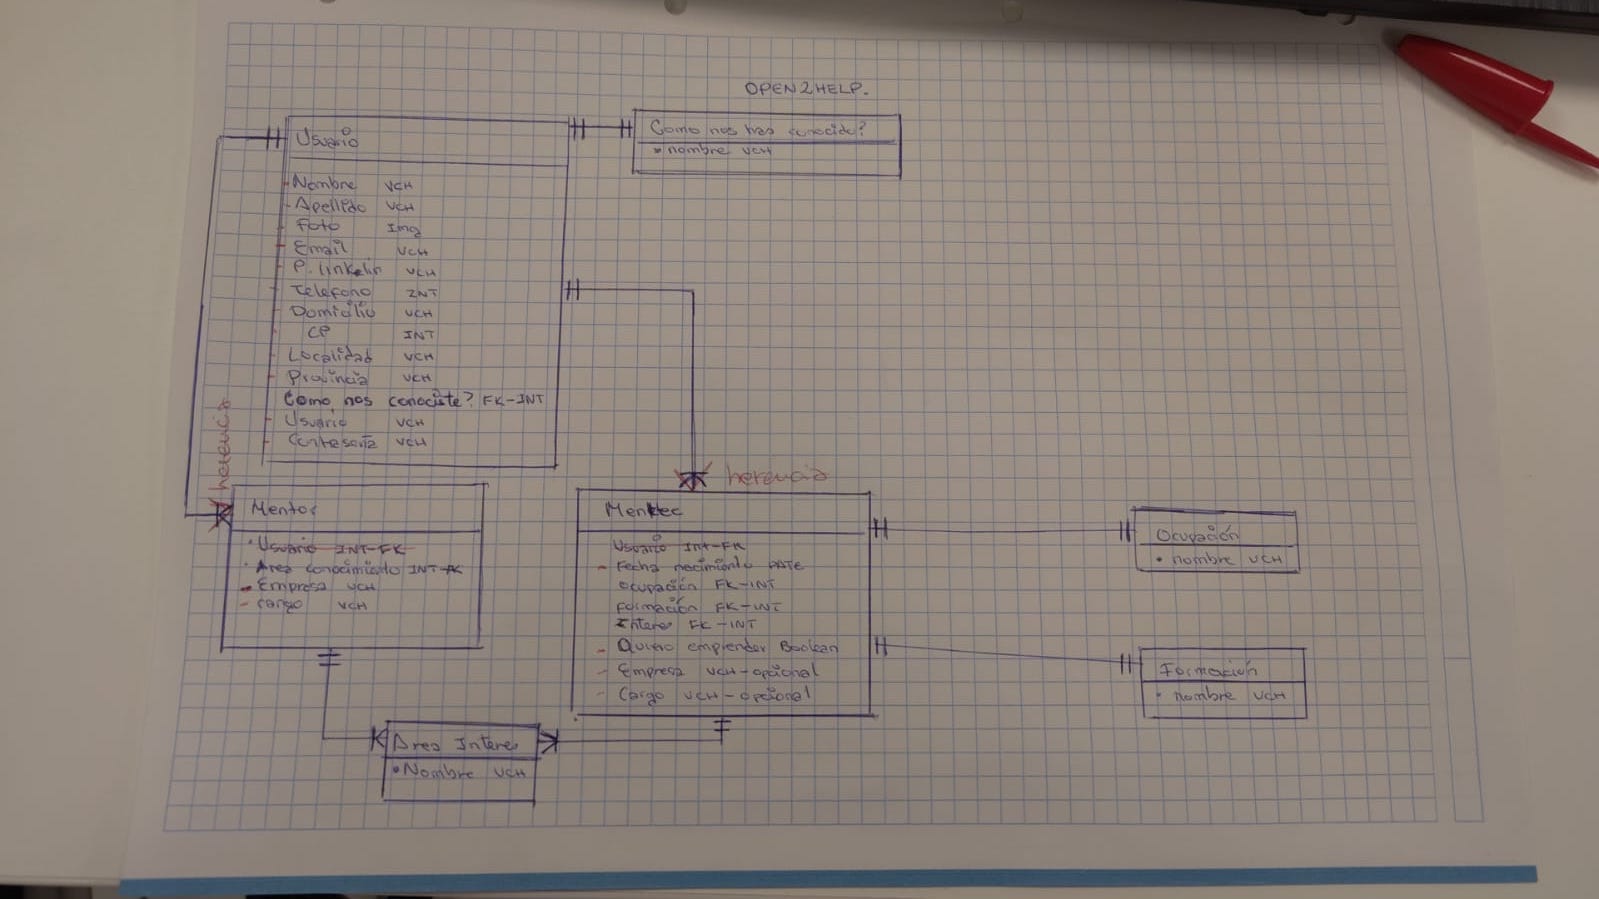 OPEN2HELP.
Usuario
Como nos has conocido?
• nombre VCH
- Nombre VCH
- Apellido VCH
- Foto Img
- Email VCH
- P. linkelin VCH
- Telefono INT
- Domicilio VCH
- CP INT
- Localidad VCH
- Provincia VCH
Como nos conociste? FK-INT
- Usuario VCH
- Contraseña VCH
herencia
herencia
Mentor
• Usuario INT-FK
• Area conocimiento INT-FK
- Empresa VCH
- cargo VCH
Mentee
Usuario Int-FK
- Fecha nacimiento DATE
ocupación FK-INT
formación FK-INT
Interes FK-INT
- Quiero emprender Boolean
- Empresa VCH-opcional
- Cargo VCH-opcional
Ocupación
• nombre VCH
Formación
• nombre VCH
Area Interes
• Nombre VCH